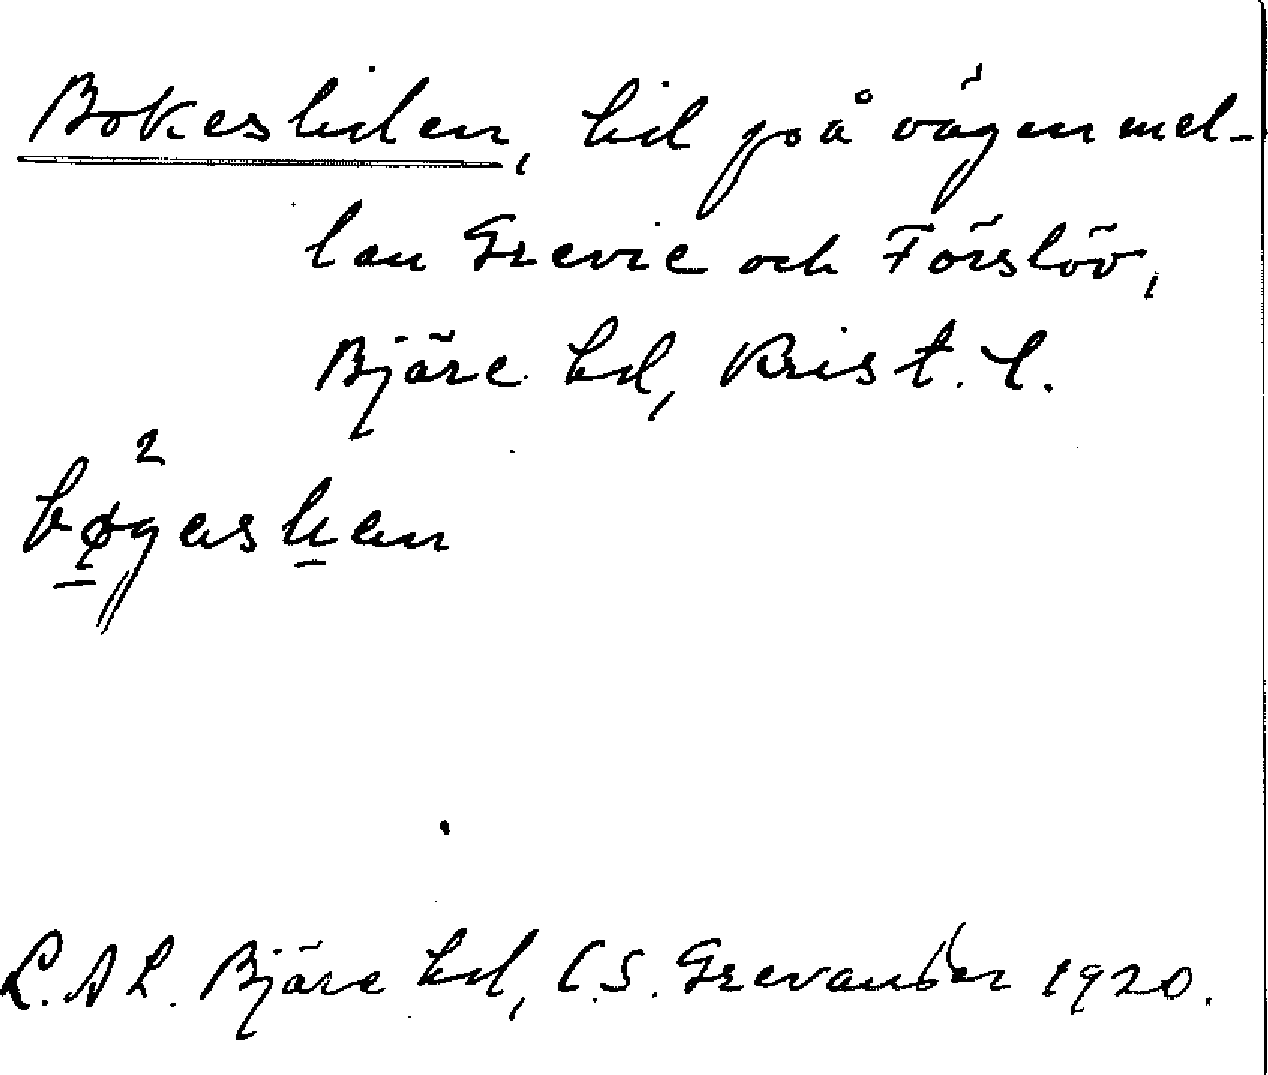 Bokesliden, lid på vägen mel-
lan Grevie och Förslöv,
Bjäre hd, Krist. l.
L.A L. Bjäre hd, C.S. Grevander 1920.